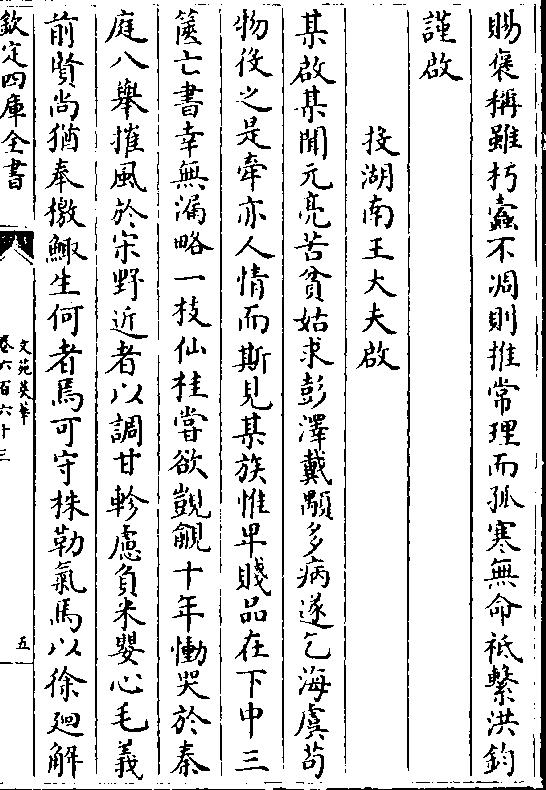 賜褒稱雖朽蠧不凋則推常理而孤寒無命祗繫洪鈞
謹啟
投湖南王大夫啟
某啟某聞元亮苦貧姑求彭澤戴顒多病遂乞海虞苟
物役之是牽亦人情而斯見某族惟卑賤品在下中三
篋亡書幸無漏略一枝仙桂嘗欲覬覦十年慟哭於秦
庭八舉摧風於宋野近者以調甘軫慮負米嬰心毛義
前賢尚猶奉檄鯫生何者焉可守株勒氣馬以徐廻解
欽定四庫全書
文苑英華
卷六百六十三
五